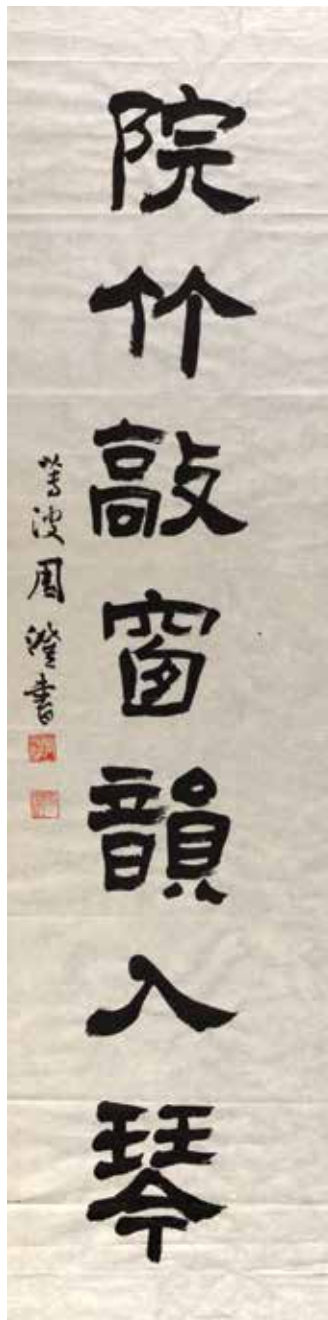 院竹敲窗韻入琴
蓴波周澄書